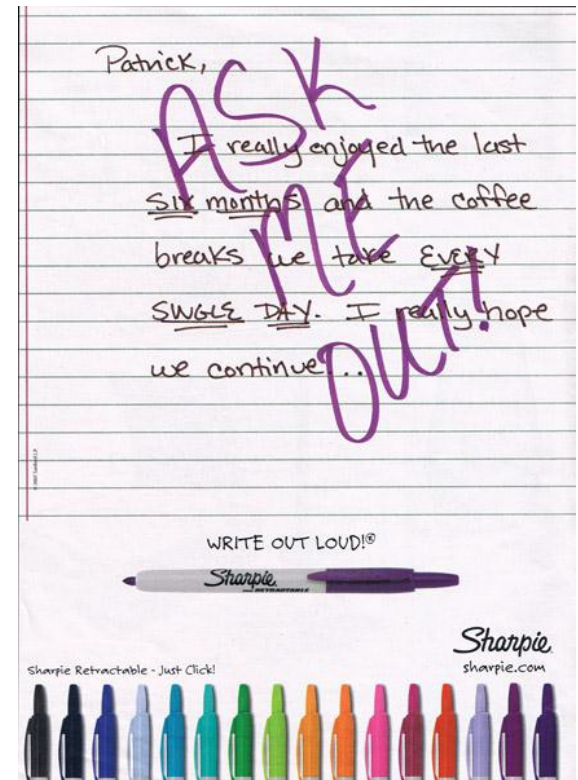 Patrick,
ASK
I really enjoyed the last
SIX months and the coffee
ME
breaks we take EVERY
SINGLE DAY. I really hope
OUT!
we continue...
WRITE OUT LOUD!®
Sharpie
RETRACTABLE
Sharpie
sharpie.com
Sharpie Retractable - Just Click!